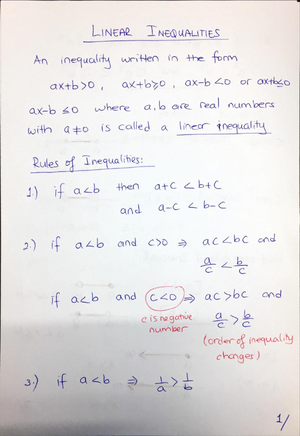 LINEAR INEQUALITIES
An inequality written in the form
ax+b>0, ax+b≥0, ax-b<0 or ax+b≤0
ax-b ≤0 where a,b are real numbers
with a≠0 is called a linear inequality
Rules of Inequalities:
1.) if a<b then a+c <b+c
and a-c < b-c
2.) if a<b and c>0 ⇒ ac<bc and
a/c < b/c
if a<b and c<0 ⇒ ac>bc and
c is negative
number
a/c > b/c
(order of inequality
changes)
3.) if a<b ⇒ 1/a > 1/b
1/